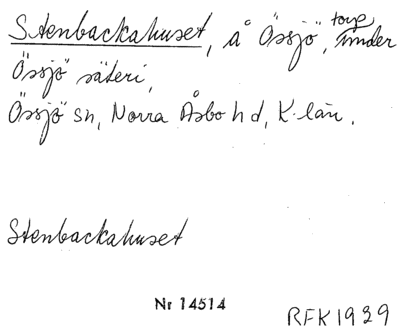 Stenbackahuset, å Össjö, torp under
Össjö säteri,
Össjö sn, Norra Åsbo hd, K-län.
Stenbackahuset
Nr 14514
RFK 1929